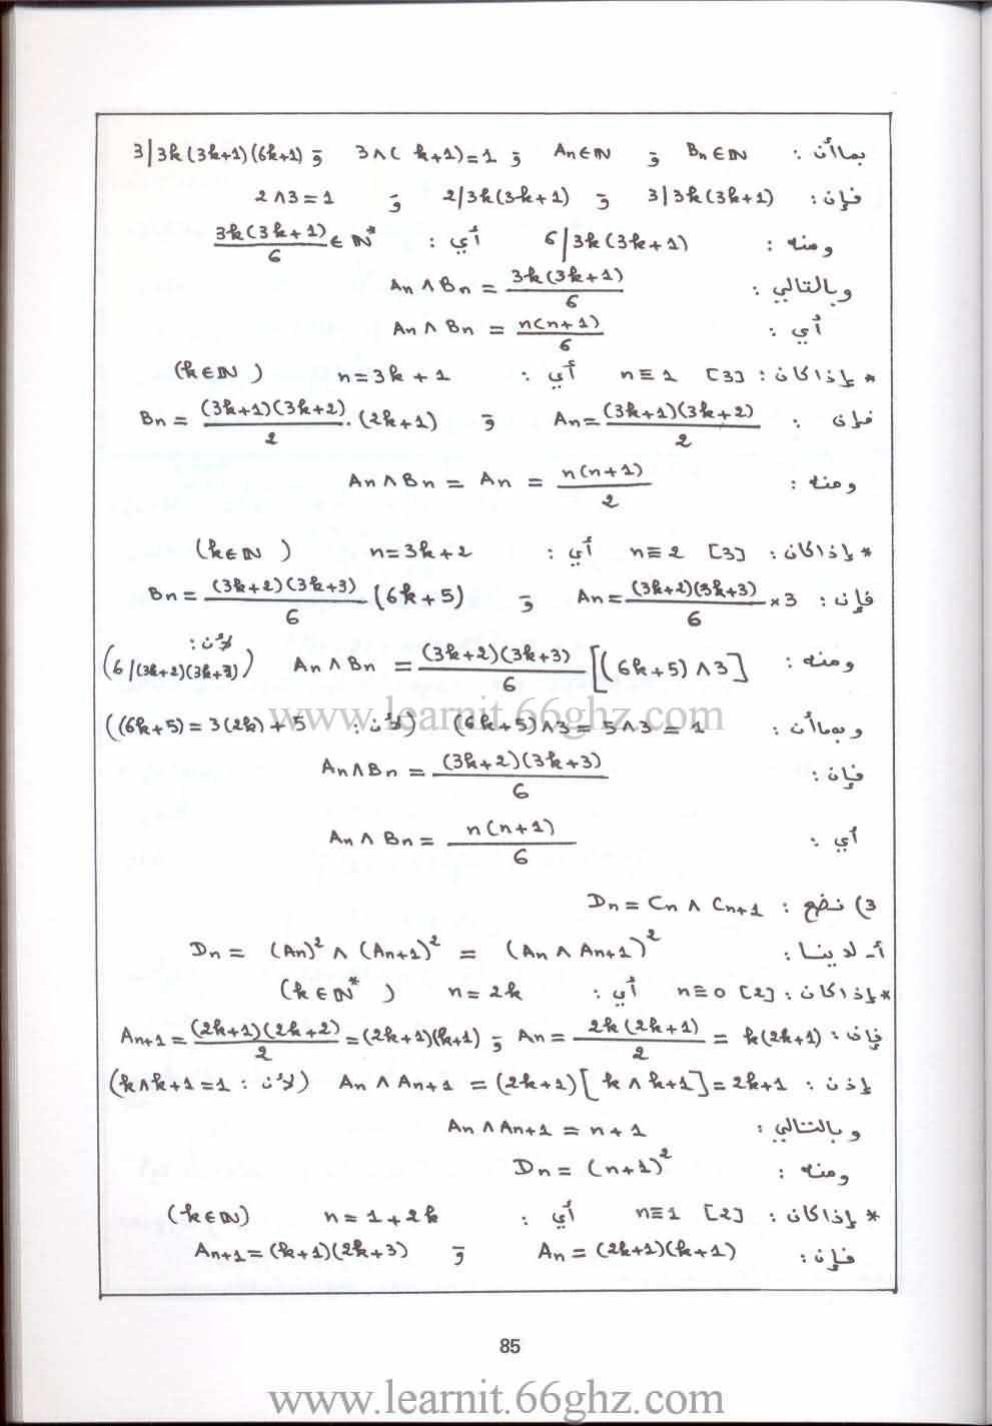 بما أن : Bₙ ∈ ℕ و Aₙ ∈ ℕ و 3∧( k+1)=1 و 3|3k(3k+1)(6k+1)
فإن : 3|3k(3k+1) و 2/3k(3k+1) و 2∧3=1
ومنه : 6|3k(3k+1) أي : 3k(3k+1)/6 ∈ ℕ*
وبالتالي : Aₙ ∧ Bₙ = 3k(3k+1)/6
أي : Aₙ ∧ Bₙ = n(n+1)/6
* إذا كان : n≡1 [3] أي : n=3k+1 (k∈ℕ)
فإن : Aₙ = (3k+1)(3k+2)/2 و Bₙ = (3k+1)(3k+2)/2 . (2k+1)
ومنه : Aₙ ∧ Bₙ = Aₙ = n(n+1)/2
* إذا كان : n≡2 [3] أي : n=3k+2 (k∈ℕ)
فإن : Aₙ = (3k+2)(3k+3)/6 ×3 و Bₙ = (3k+2)(3k+3)/6 (6k+5)
ومنه : Aₙ ∧ Bₙ = (3k+2)(3k+3)/6 [(6k+5)∧3] (لأن : 6/(3k+2)(3k+3))
وبما أن : (6k+5)∧3 = 5∧3 = 1 (لأن : (6k+5) = 3(2k)+5)
فإن : Aₙ∧Bₙ = (3k+2)(3k+3)/6
أي : Aₙ ∧ Bₙ = n(n+1)/6
3) نضع : Dₙ = Cₙ ∧ Cₙ₊₁
أ- لدينا : Dₙ = (Aₙ)² ∧ (Aₙ₊₁)² = (Aₙ ∧ Aₙ₊₁)²
* إذا كان : n≡0 [2] أي : n=2k (k∈ℕ*)
فإن : Aₙ = 2k(2k+1)/2 = k(2k+1) و Aₙ₊₁ = (2k+1)(2k+2)/2 = (2k+1)(k+1)
إذن : Aₙ ∧ Aₙ₊₁ = (2k+1)[k ∧ k+1] = 2k+1 (لأن : k∧k+1=1)
وبالتالي : Aₙ ∧ Aₙ₊₁ = n+1
ومنه : Dₙ = (n+1)²
* إذا كان : n≡1 [2] أي : n=1+2k (k∈ℕ)
فإن : Aₙ = (2k+1)(k+1) و Aₙ₊₁ = (k+1)(2k+3)
85
www.learnit.66ghz.com
www.learnit.66ghz.com